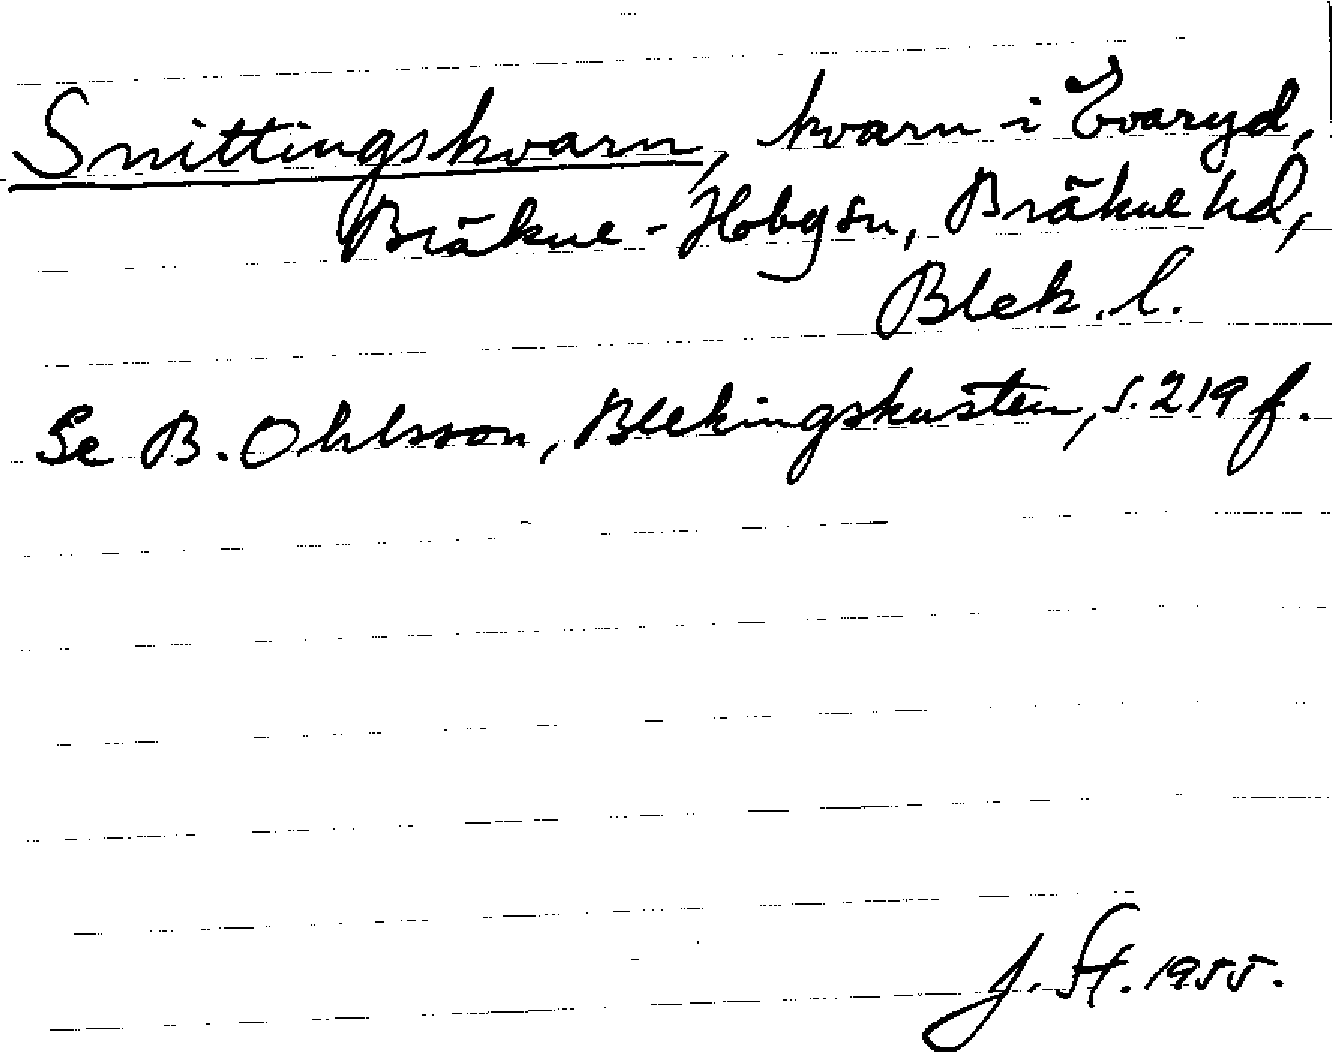 Snittingskvarn, kvarn i Evaryd,
Bräkne-Hoby sn, Bräkne hd,
Blek. l.
Se B. Ohlsson, Blekingskusten, s. 219 f.
J. St. 1955.